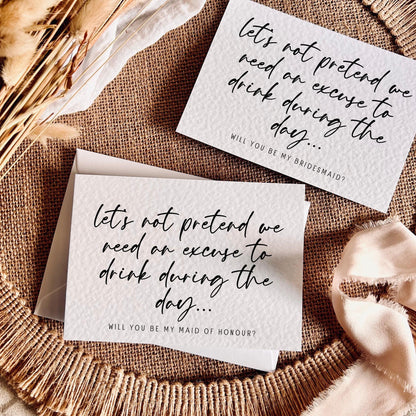 let's not pretend we
need an excuse to
drink during the
day...
WILL YOU BE MY BRIDESMAID?
let's not pretend we
need an excuse to
drink during the
day...
WILL YOU BE MY MAID OF HONOUR?